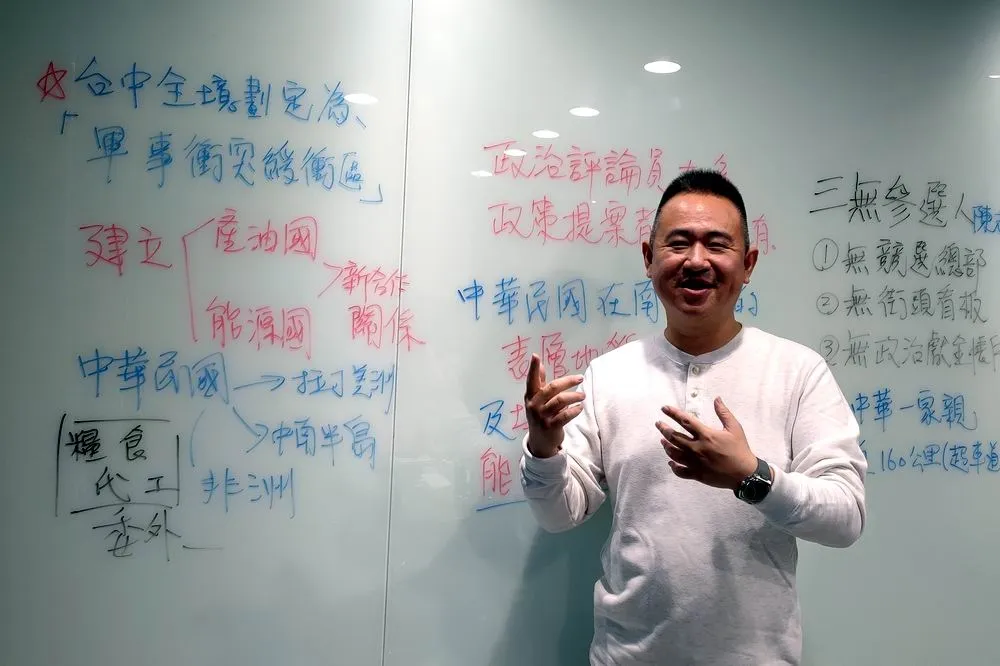 ☆台中全境劃定為、
「軍事衝突緩衝區」
建立 產油國
能源國
新合作
關係
中華民國→拉丁美洲
→中南半島
非洲
糧食
代工
委外
政治評論員
政策提案
中華民國在南 的
表層地
及
能
三無參選人 陳
①無競選總部
②無街頭看板
③無政治獻金
中華一家親
160公里(超車道